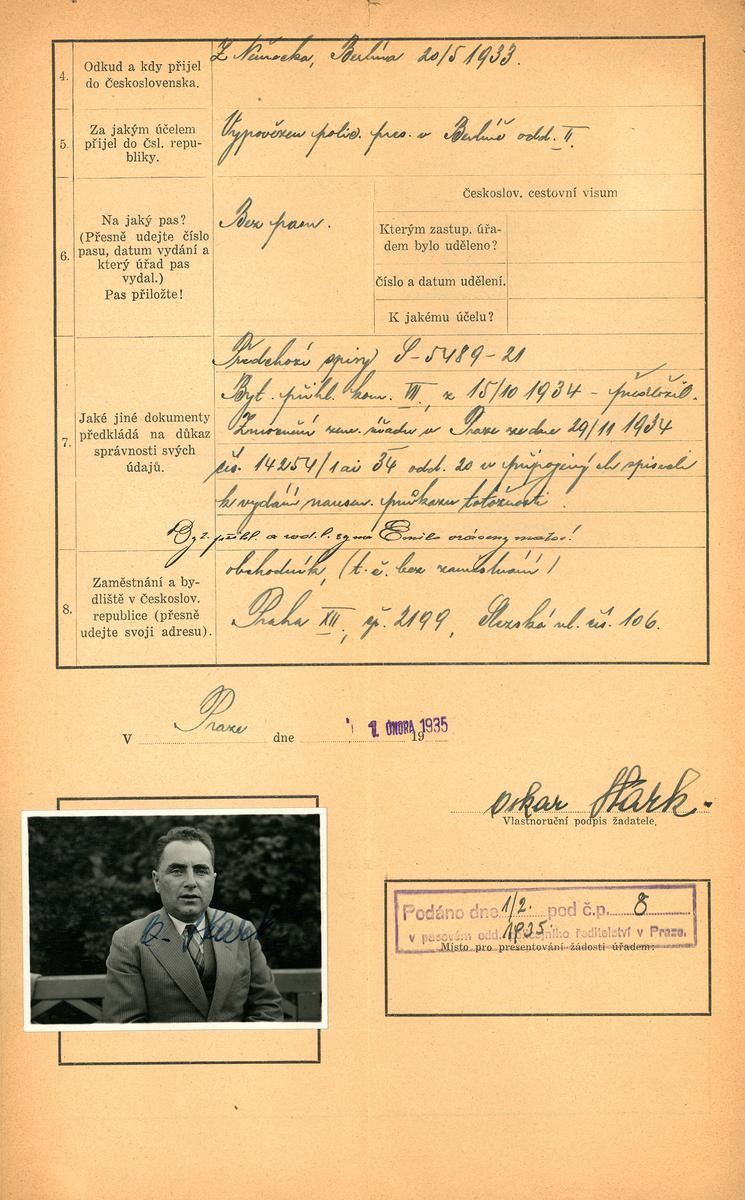 4.
Odkud a kdy přijel
do Československa.
Z Německa, Berlína 20/5 1933.
5.
Za jakým účelem
přijel do čsl. repu-
bliky.
Vypovězen polic. pres. v Berlíně odd. II.
6.
Na jaký pas?
(Přesně udejte číslo
pasu, datum vydání a
který úřad pas
vydal.)
Pas přiložte!
Bez pasu.
Českoslov. cestovní visum
Kterým zastup. úřa-
dem bylo uděleno?
Číslo a datum udělení.
K jakému účelu?
7.
Jaké jiné dokumenty
předkládá na důkaz
správnosti svých
údajů.
Předchozí spisy S-5489-21
Byt. přihl. kom. VIII, z 15/10 1934 - předložil.
Zmocnění zem. úřadu v Praze ze dne 29/11 1934
čís. 14254/1 ai 34 odd. 20 v připojených spisech
k vydání průkazu totožnosti.
přihl. a syna Emila vráceny
8.
Zaměstnání a by-
dliště v Českoslov.
republice (přesně
udejte svoji adresu).
obchodník, (t. č. bez zaměstnání)
Praha XII, čp. 2199, Slezská ul. čís. 106.
V Praze dne 1. ÚNORA 1935 19
Oskar Stark.
Vlastnoruční podpis žadatele.
O. Stark
Podáno dne 1/2. 1935. pod č.p. 8
v pasovém odd. policejního ředitelství v Praze.
Místo pro presentování žádosti úřadem: